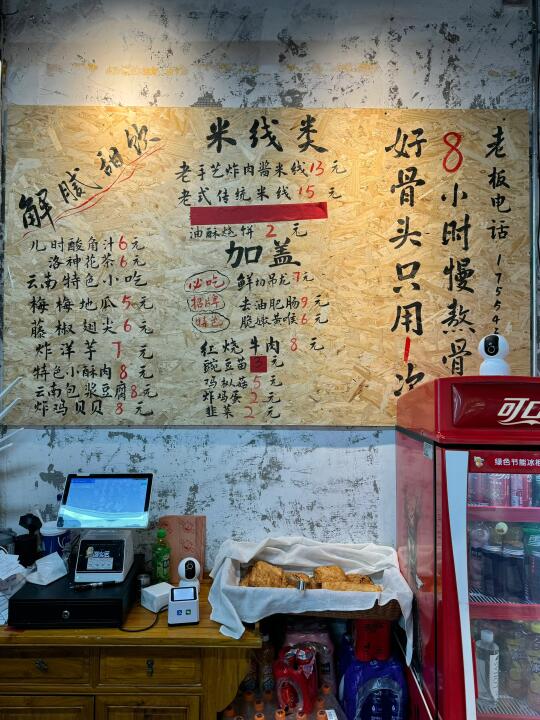 解腻甜饮
儿时酸角汁6元
洛神花茶6元
云南特色小吃
梅梅地瓜5元
藤椒翅尖6元
炸洋芋7元
特色小酥肉8元
云南包浆豆腐8元
炸鸡贝贝8元
米线类
老手艺炸肉酱米线13元
老式传统米线15元
油酥烧饼2元
加盖
必吃 鲜切吊龙7元
招牌 去油肥肠9元
特色 脆嫩黄喉6元
红烧牛肉8元
豌豆苗3元
鸡枞菇5元
炸鸡蛋2元
韭菜2元
好骨头只用1次
8小时慢熬骨
老板电话 17554
可口
绿色节能冰柜